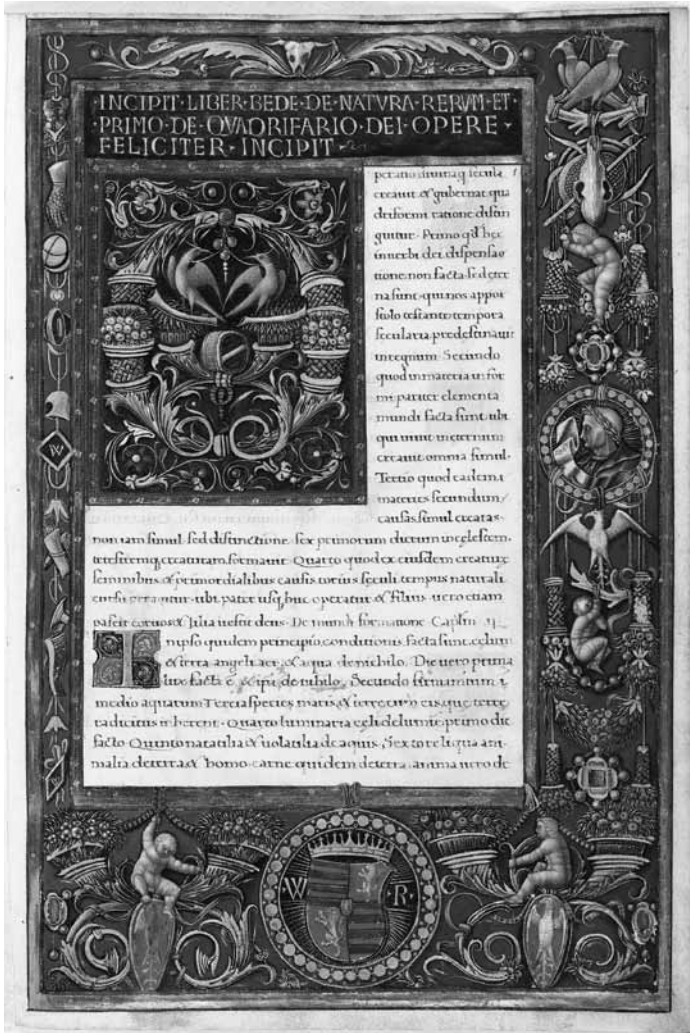 ·INCIPIT·LIBER·BEDE·DE·NATVRA·RERVM·ET·
·PRIMO·DE·QVADRIFARIO·DEI·OPERE·
FELICITER·INCIPIT·
peratio diuina q secula
creauit & gubernat qua
driformi ratione distin
guitur· Primo qd hec
in uerbi dei dispensa
tione non facta sed eter
na sunt· qui nos appo
stolo testante tempora
secularia predestinauit
in regnum· Secundo
quod in materia infor
mi pariter elementa
mundi facta sunt· ubi
qui uiuit in eternum
creauit omnia simul·
Tertio quod eadem
materies secundum
causas simul creatas·
non iam simul· sed distinctione· sex primorum dierum in celestem·
terrestremq; creaturam formauit· Quarto quod ex eiusdem creature
seminibus & primordialibus causis totius seculi tempus naturali
cursu ubi pater usq; huc operatur & filius· uero etiam
pascit coruos & lilia uestit deus· De mundi formatione· Caplm ij
In ipso quidem principio conditionis facta sunt· celum
& terra angeli aer· & aqua de nichilo· Die uero prima
lux facta ē & ipa de nihilo· Secundo firmamentum i
medio aquarum Tertia species maris & terre cum eis que terre
radicitus inherent· Quarto luminaria celi de lumine primo die
facto· Quinto natatilia & uolatilia de aquis· Sexto reliqua ani-
malia de terra & homo· carne quidem de terra· anima uero de
·W· ·R·